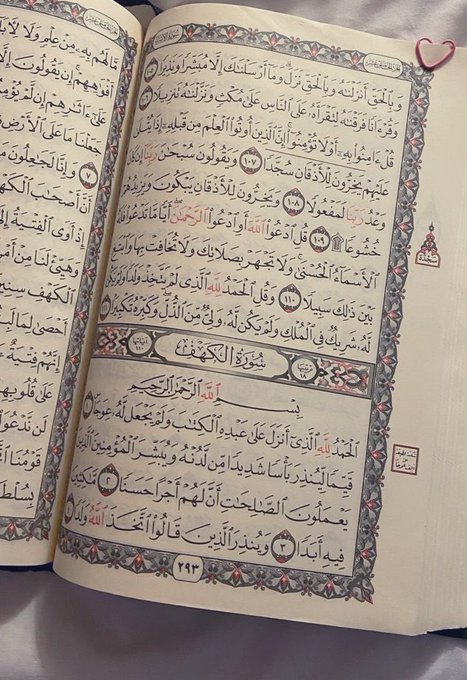 سُورَةُ الإِسْرَاءِ
وَبِٱلْحَقِّ أَنزَلْنَٰهُ وَبِٱلْحَقِّ نَزَلَ وَمَآ أَرْسَلْنَٰكَ إِلَّا مُبَشِّرًا وَنَذِيرًا ١٠٥
وَقُرْءَانًا فَرَقْنَٰهُ لِتَقْرَأَهُۥ عَلَى ٱلنَّاسِ عَلَىٰ مُكْثٍ وَنَزَّلْنَٰهُ تَنزِيلًا ١٠٦
قُلْ ءَامِنُوا۟ بِهِۦٓ أَوْ لَا تُؤْمِنُوٓا۟ إِنَّ ٱلَّذِينَ أُوتُوا۟ ٱلْعِلْمَ مِن قَبْلِهِۦٓ إِذَا يُتْلَىٰ
عَلَيْهِمْ يَخِرُّونَ لِلْأَذْقَانِ سُجَّدًا ١٠٧ وَيَقُولُونَ سُبْحَٰنَ رَبِّنَآ إِن كَانَ
وَعْدُ رَبِّنَا لَمَفْعُولًا ١٠٨ وَيَخِرُّونَ لِلْأَذْقَانِ يَبْكُونَ وَيَزِيدُهُمْ
خُشُوعًا ۩ ١٠٩ قُلِ ٱدْعُوا۟ ٱللَّهَ أَوِ ٱدْعُوا۟ ٱلرَّحْمَٰنَ أَيًّا مَّا تَدْعُوا۟ فَلَهُ
ٱلْأَسْمَآءُ ٱلْحُسْنَىٰ وَلَا تَجْهَرْ بِصَلَاتِكَ وَلَا تُخَافِتْ بِهَا وَٱبْتَغِ
بَيْنَ ذَٰلِكَ سَبِيلًا ١١٠ وَقُلِ ٱلْحَمْدُ لِلَّهِ ٱلَّذِى لَمْ يَتَّخِذْ وَلَدًا وَلَمْ يَكُن
لَّهُۥ شَرِيكٌ فِى ٱلْمُلْكِ وَلَمْ يَكُن لَّهُۥ وَلِىٌّ مِّنَ ٱلذُّلِّ وَكَبِّرْهُ تَكْبِيرًۢا
سُورَةُ الكَهْفِ
بِسْمِ ٱللَّهِ ٱلرَّحْمَٰنِ ٱلرَّحِيمِ
ٱلْحَمْدُ لِلَّهِ ٱلَّذِىٓ أَنزَلَ عَلَىٰ عَبْدِهِ ٱلْكِتَٰبَ وَلَمْ يَجْعَل لَّهُۥ عِوَجَا
قَيِّمًا لِّيُنذِرَ بَأْسًا شَدِيدًا مِّن لَّدُنْهُ وَيُبَشِّرَ ٱلْمُؤْمِنِينَ ٱلَّذِينَ
يَعْمَلُونَ ٱلصَّٰلِحَٰتِ أَنَّ لَهُمْ أَجْرًا حَسَنًا ٢ مَّٰكِثِينَ
فِيهِ أَبَدًا ٣ وَيُنذِرَ ٱلَّذِينَ قَالُوا۟ ٱتَّخَذَ ٱللَّهُ وَلَدًا
٢٩٣
مَّا لَهُم بِهِۦ مِنْ عِلْمٍ وَلَا لِـَٔابَا
أَفْوَٰهِهِمْ إِن يَقُولُونَ إِلَّا
عَلَىٰٓ ءَاثَٰرِهِمْ إِن لَّمْ يُؤْمِ
جَعَلْنَا مَا عَلَى ٱلْأَرْضِ
٧ وَإِنَّا لَجَٰعِلُونَ مَا
أَنَّ أَصْحَٰبَ ٱلْكَهْفِ
إِذْ أَوَى ٱلْفِتْيَةُ إِلَى
وَهَيِّئْ لَنَا مِنْ أَمْرِنَا
ٱلْكَهْفِ سِنِينَ
أَحْصَىٰ لِمَا لَبِثُ
إِنَّهُمْ فِتْيَةٌ
عَلَىٰ قُلُوبِهِمْ
لَن نَّدْعُوَا۟
قَوْمُنَا
بِسُلْطَٰ